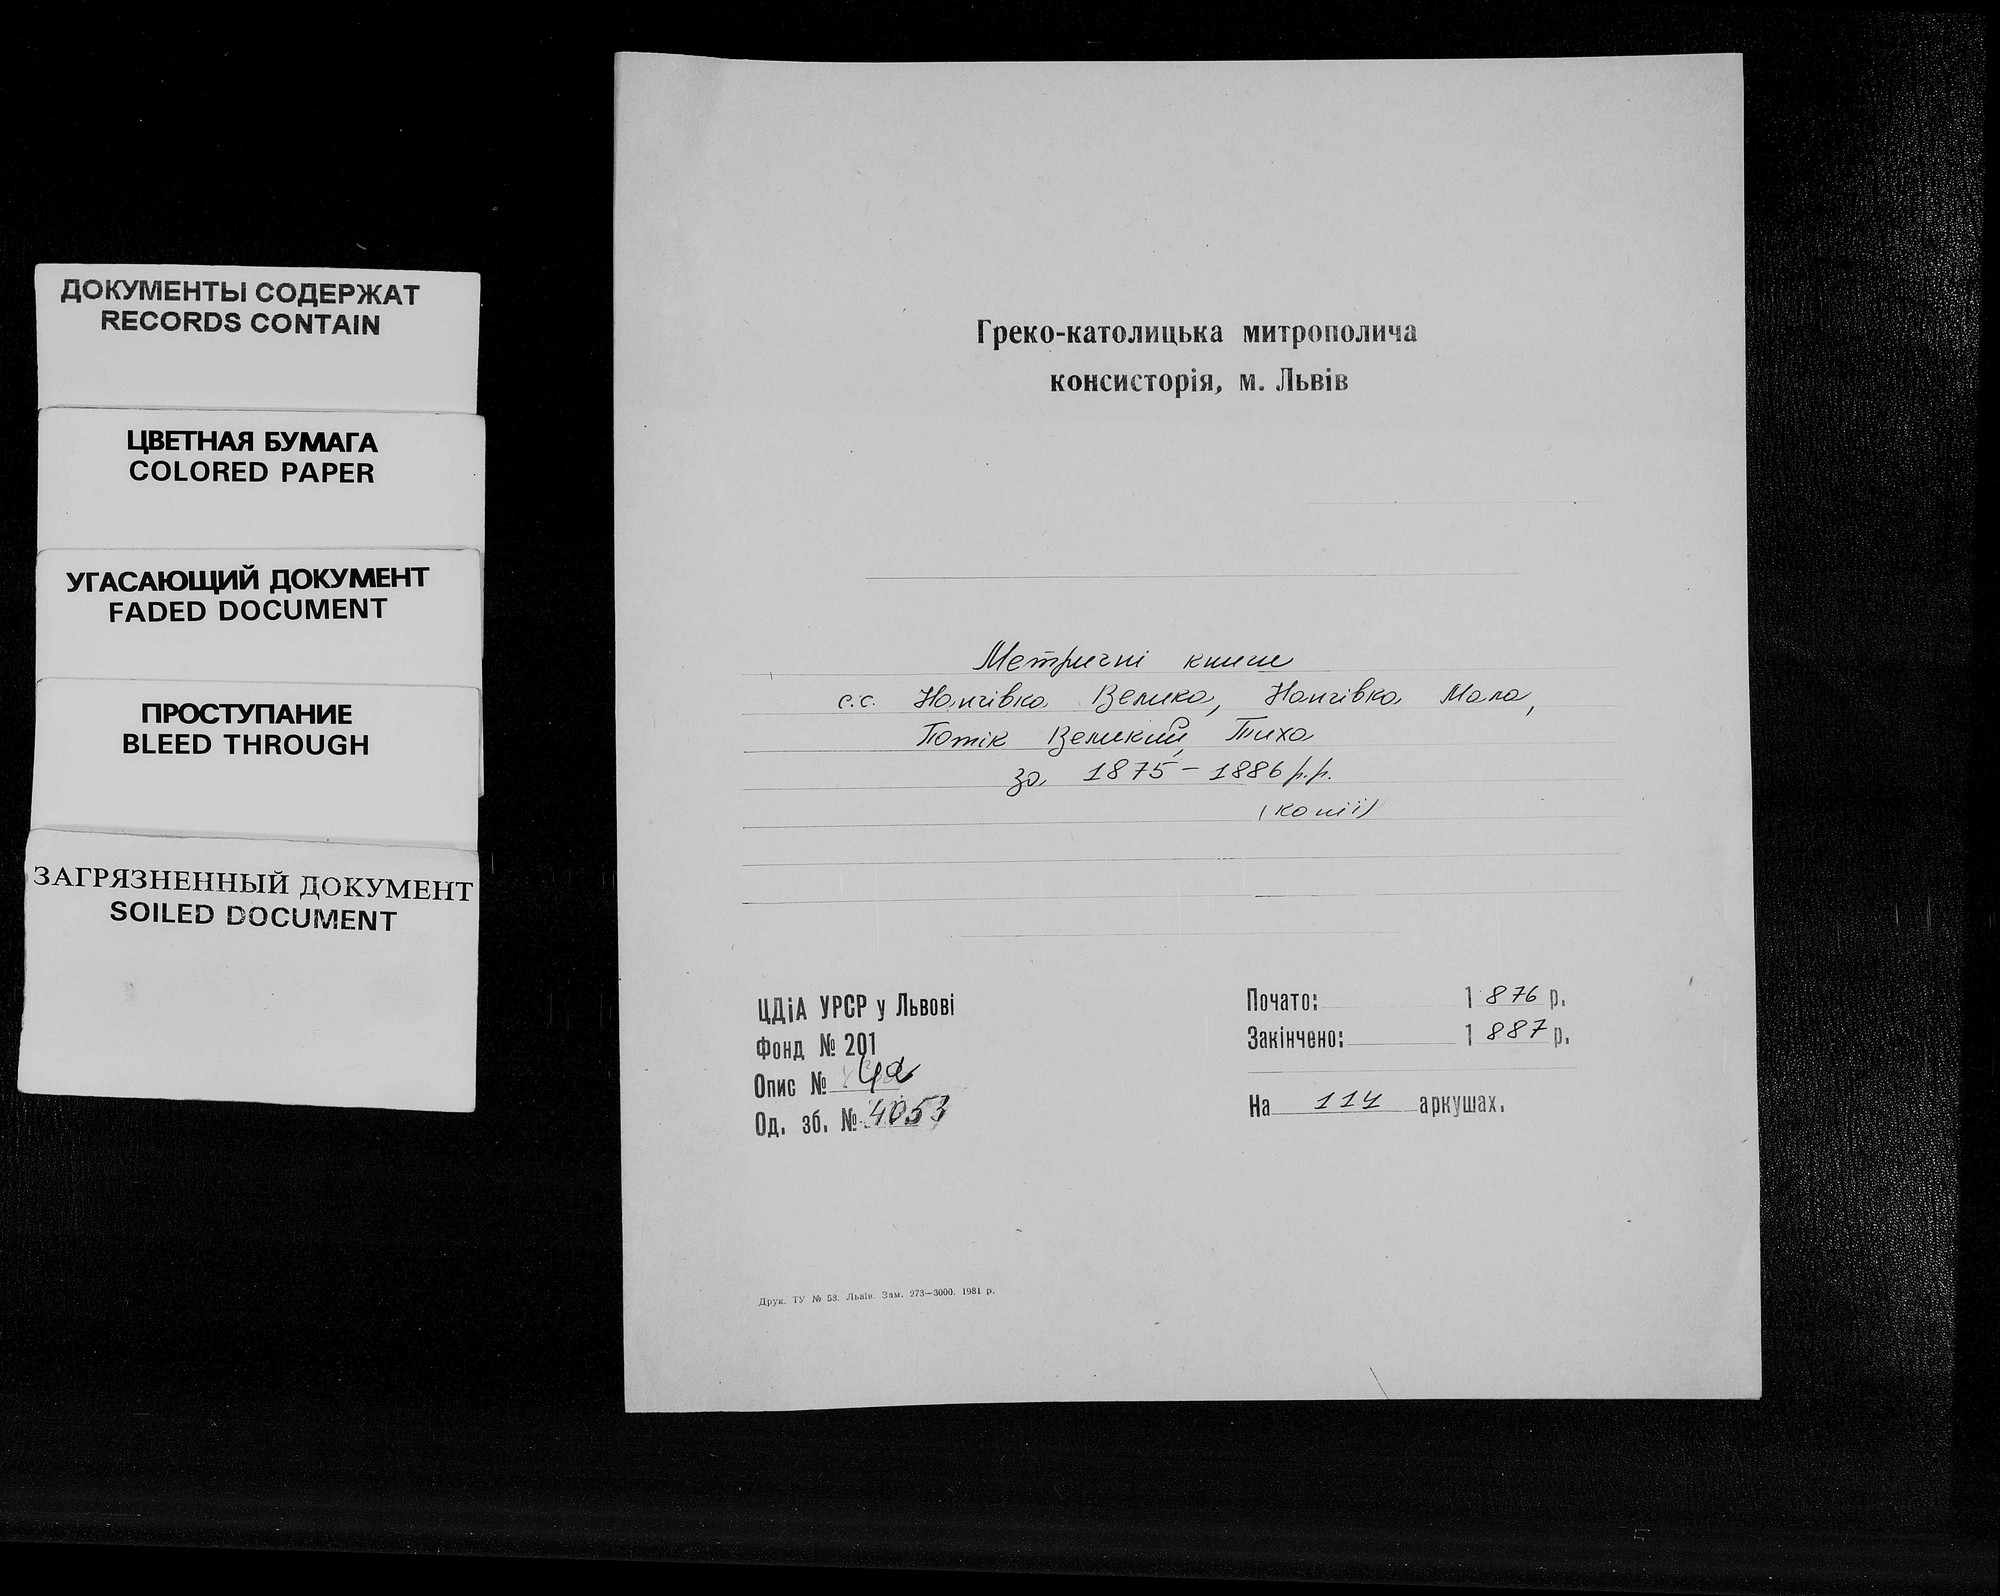 ДОКУМЕНТЫ СОДЕРЖАТ
RECORDS CONTAIN
ЦВЕТНАЯ БУМАГА
COLORED PAPER
УГАСАЮЩИЙ ДОКУМЕНТ
FADED DOCUMENT
ПРОСТУПАНИЕ
BLEED THROUGH
ЗАГРЯЗНЕННЫЙ ДОКУМЕНТ
SOILED DOCUMENT
Греко-католицька митрополича
консисторія, м. Львів
Метричні книги
с.с. Нанчівка Велика, Нанчівка Мала,
Потік Великий, Тиха
за 1875 – 1886 р.р.
(копії)
ЦДіА УРСР у Львові
Фонд № 201
Опис № 4а
Од. зб. № 4053
Почато: 1876 р.
Закінчено: 1887 р.
На 114 аркушах.
Друк. ТУ № 58. Львів. Зам. 273—3000. 1981 р.